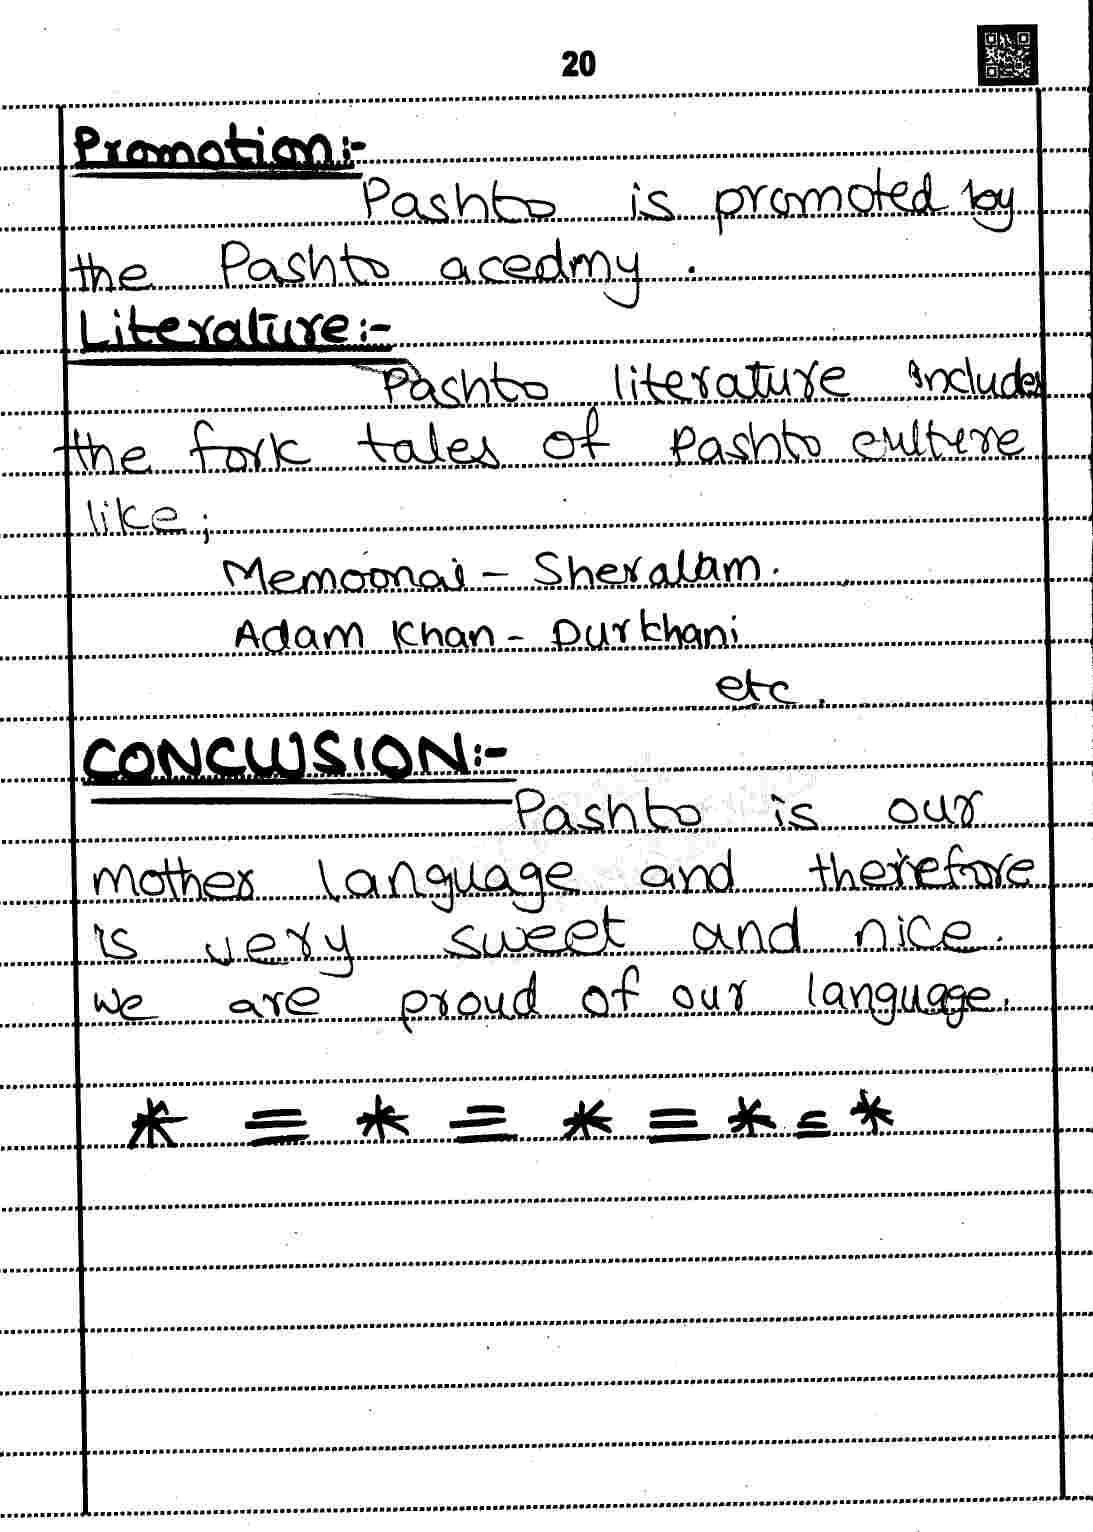 20
Promotion:-
Pashto is promoted by
the Pashto acedmy.
Literature:-
Pashto literature includes
the fork tales of Pashto culture
like;
Memoonai - Sheralam.
Adam Khan - Durkhani
etc.
CONCLUSION:-
Pashto is our
mother language and therefore
is very sweet and nice.
we are proud of our language.
* = * = * = * = *